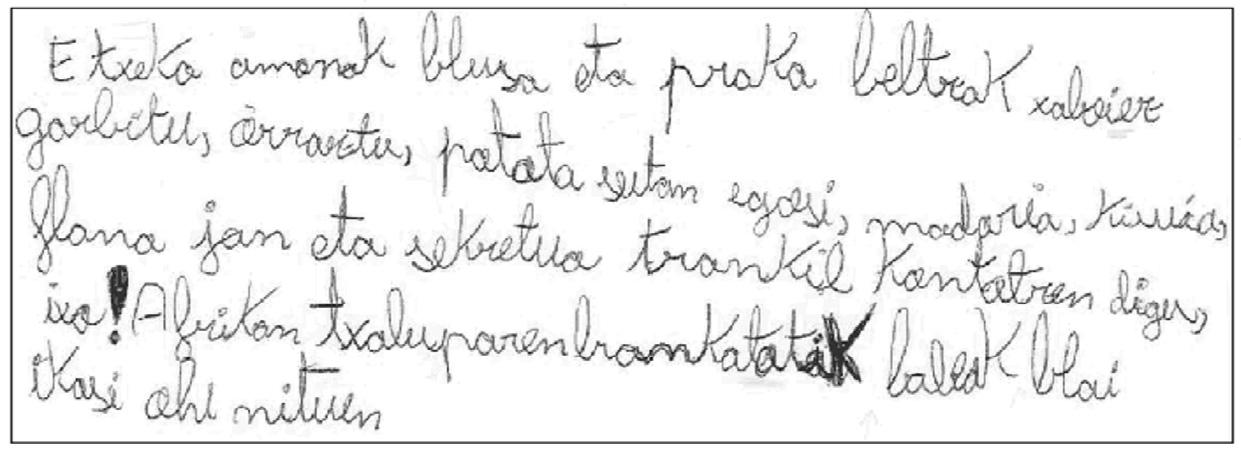 Etxeko amonak blusa eta praka beltzak xaboiez
garbitu, arraztu, patata sutan egosi, madaria, kiwia,
flana jan eta sekretua trankil kontatzen digu,
ixo! Afrikan txaluparen brankatatik baleak blai
ikasi ohi nituen